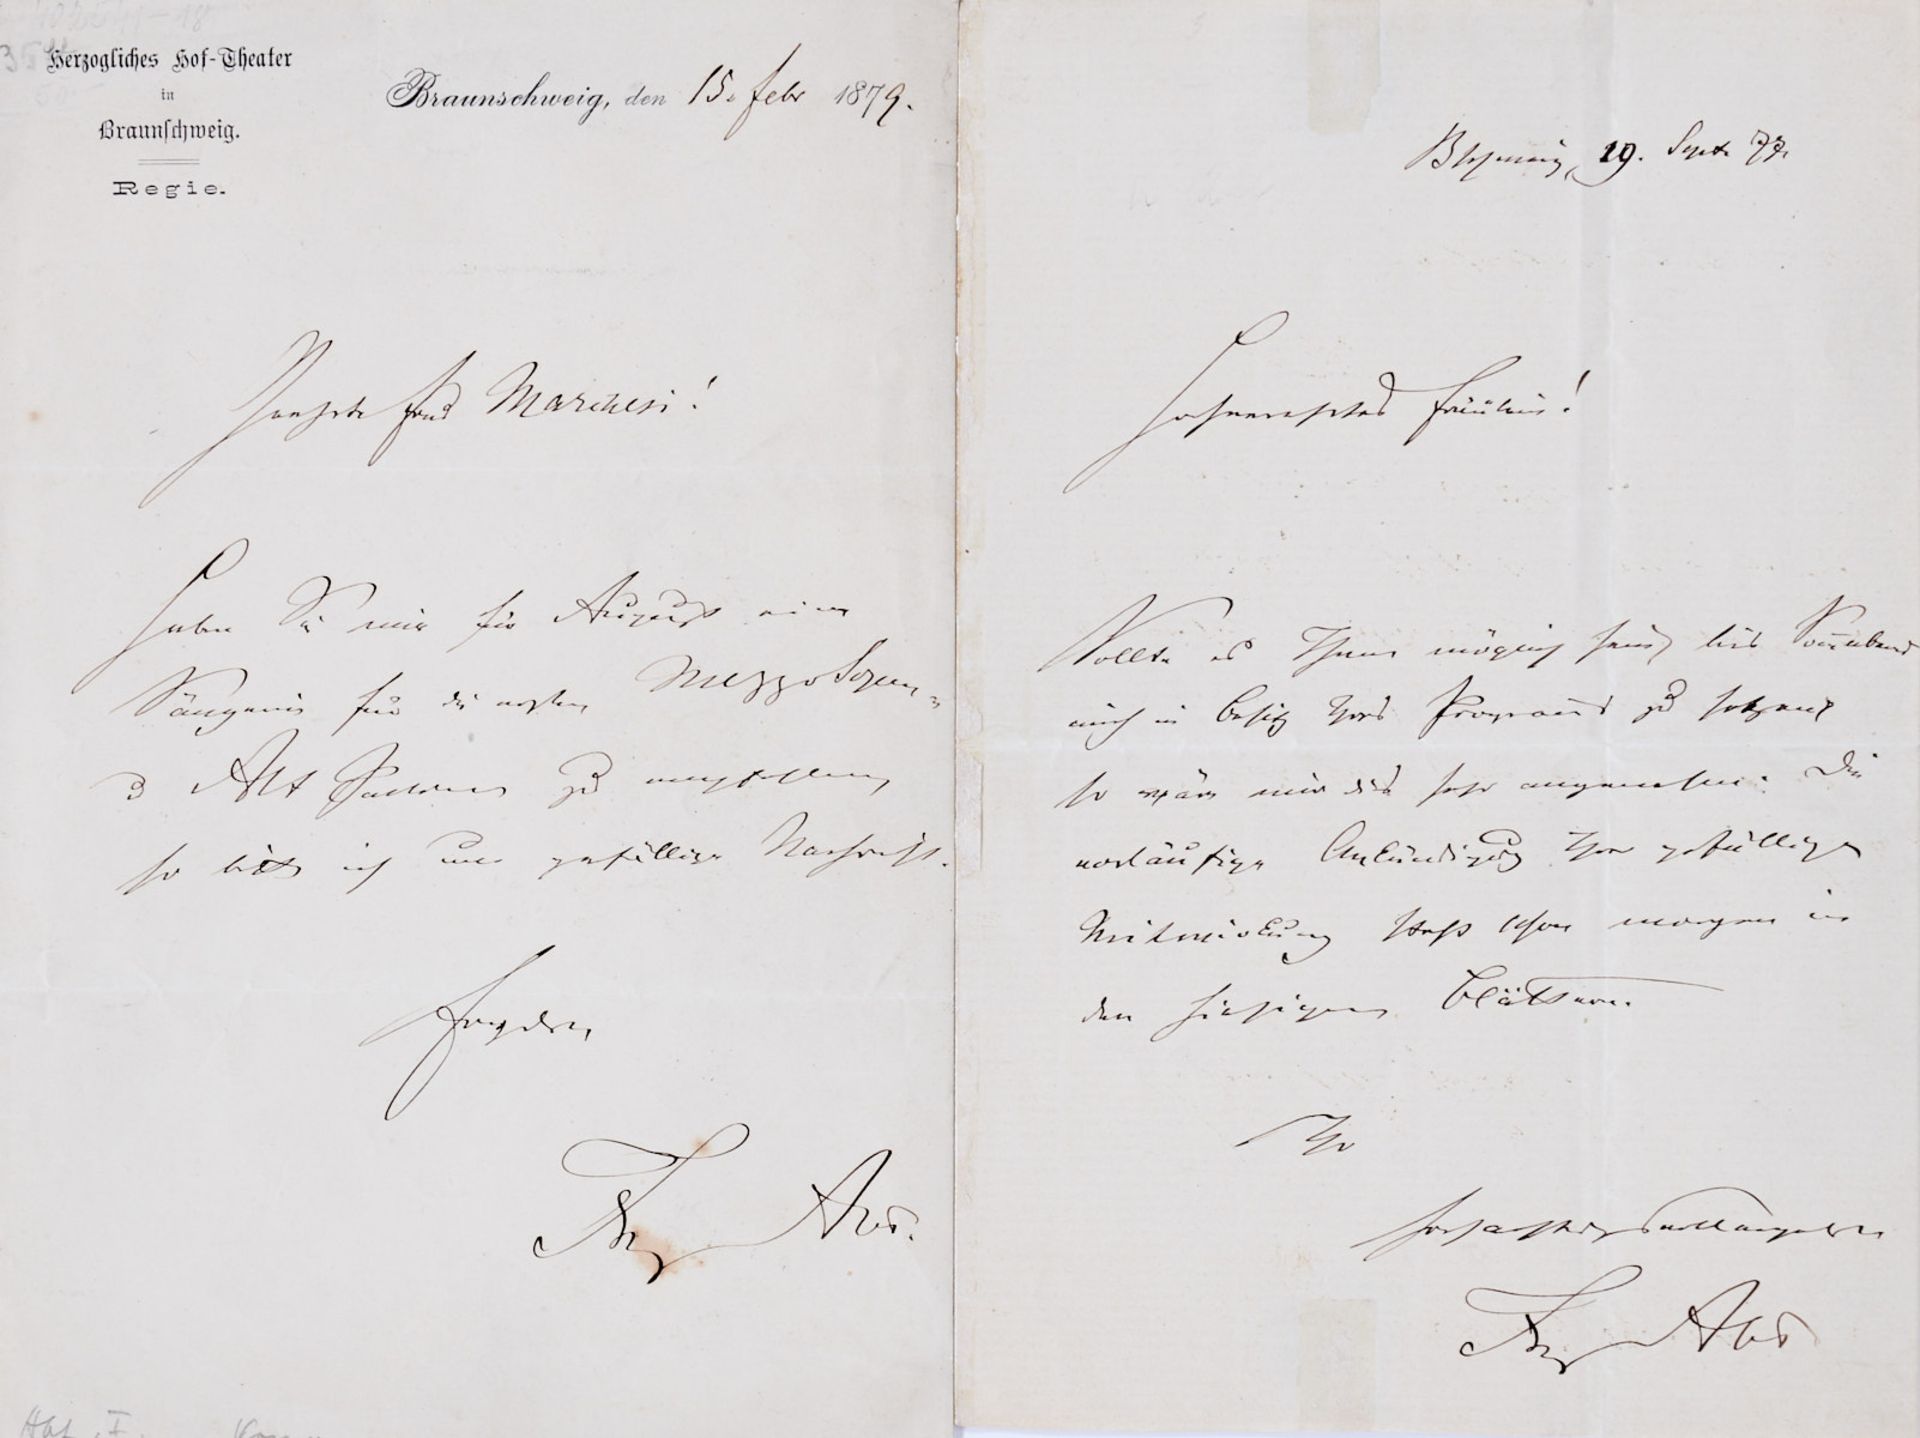 Herzogliches Hof-Theater
in
Braunschweig.
Regie.
Braunschweig, den 15. Febr 1879.
Geehrte Frau Marchesi!
Haben Sie mir für August eine
Sängerin für die ersten Mezzo Sopran=
u Alt Partien zu empfehlen,
so bitte ich um gefällige Nachricht.
Ergebenst
Franz Abt.
Bschweig, 19. Septr 77.
Hochverehrtes Fräulein!
Sollte es Ihnen möglich sein, bis Sonnabend
mich in Besitz Ihres Programms zu setzen,
so wäre mir dies sehr angenehm. Die
vorläufige Ankündigung Ihrer gefälligen
Mitwirkung steht schon morgen in
den hiesigen Blättern.
Ihr
hochachtungsvoll ergebener
Franz Abt